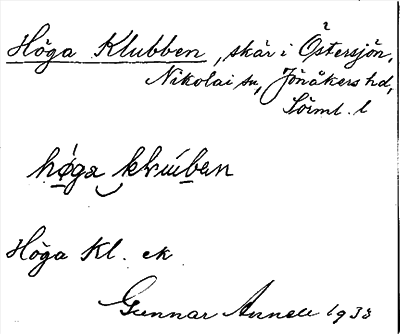 Höga Klubben, skär i Östersjön,
Nikolai sn, Jönåkers hd,
Sörml. l
höga klubban
Höga Kl. ek
Gunnar Annell 1938